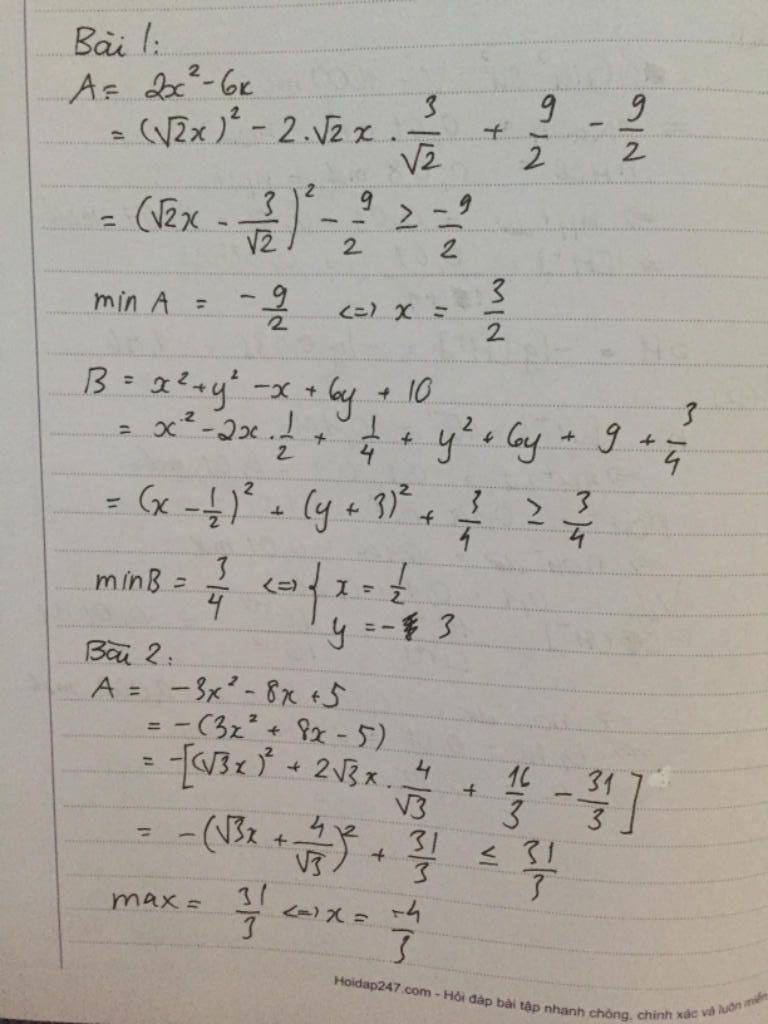 Bài 1:
A = 2x² - 6x
= (√2x)² - 2.√2x . 3/√2 + 9/2 - 9/2
= (√2x - 3/√2)² - 9/2 ≥ -9/2
min A = -9/2 <=> x = 3/2
B = x² + y² - x + 6y + 10
= x² - 2x . 1/2 + 1/4 + y² + 6y + 9 + 3/4
= (x - 1/2)² + (y + 3)² + 3/4 ≥ 3/4
min B = 3/4 <=> { x = 1/2
y = - 3
Bài 2:
A = -3x² - 8x + 5
= -(3x² + 8x - 5)
= -[(√3x)² + 2√3x . 4/√3 + 16/3 - 31/3]
= -(√3x + 4/√3)² + 31/3 ≤ 31/3
max = 31/3 <=> x = -4/3
Hoidap247.com - Hỏi đáp bài tập nhanh chóng, chính xác và luôn miễn